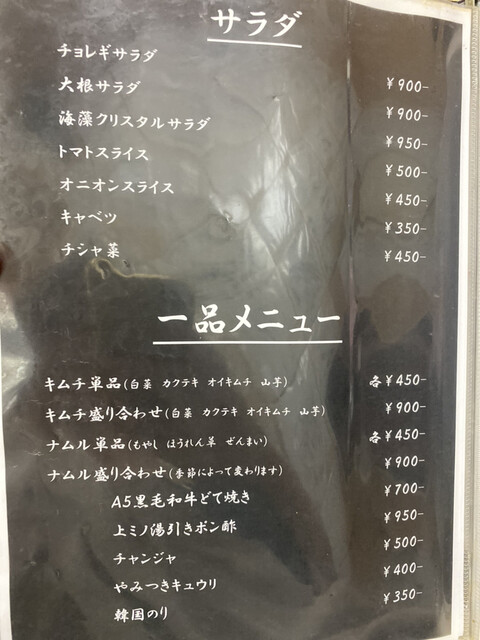 サラダ
チョレギサラダ ¥900-
大根サラダ ¥900-
海藻クリスタルサラダ ¥950-
トマトスライス ¥500-
オニオンスライス ¥450-
キャベツ ¥350-
チシャ菜 ¥450-
一品メニュー
キムチ単品(白菜 カクテキ オイキムチ 山芋) 各¥450-
キムチ盛り合わせ(白菜 カクテキ オイキムチ 山芋) ¥900-
ナムル単品(もやし ほうれん草 ぜんまい) 各¥450-
ナムル盛り合わせ(季節によって変わります) ¥900-
A5黒毛和牛どて焼き ¥700-
上ミノ湯引きポン酢 ¥950-
チャンジャ ¥500-
やみつきキュウリ ¥400-
韓国のり ¥350-